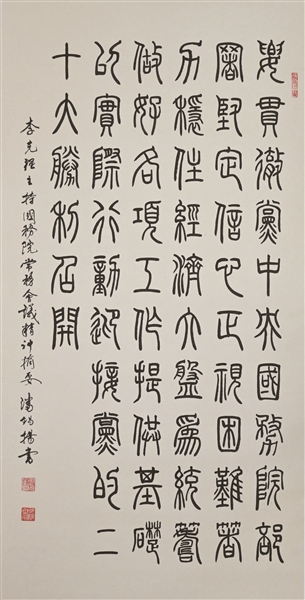 要貫徹黨中央國務院部
署堅定信心正視困難著
力穩住經濟大盤為統籌
做好各項工作提供基礎
以實際行動迎接黨的二
十大勝利召開
李克強主持國務院常務會議精神摘要 潘揚書